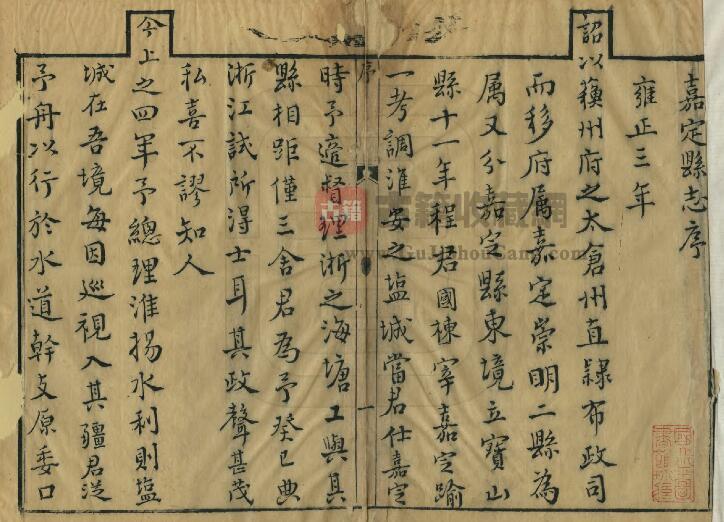 嘉定縣志序
雍正三年
詔以蘓州府之太倉州直隸布政司
而移府属嘉定崇明二縣為
属又分嘉定縣東境立寶山
縣十一年程君國棟宰嘉定踰
一考調淮安之塩城當君仕嘉定
序
一
時予適督理浙之海塘工與其
縣相距僅三舍君為予癸巳典
浙江試所得士耳其政聲甚茂
私喜不謬知人
今上之四年予總理淮揚水利則塩
城在吾境每因巡視入其疆君送
予舟以行於水道幹支原委口
古籍
古籍收藏網
www.GuJiShouCang.com